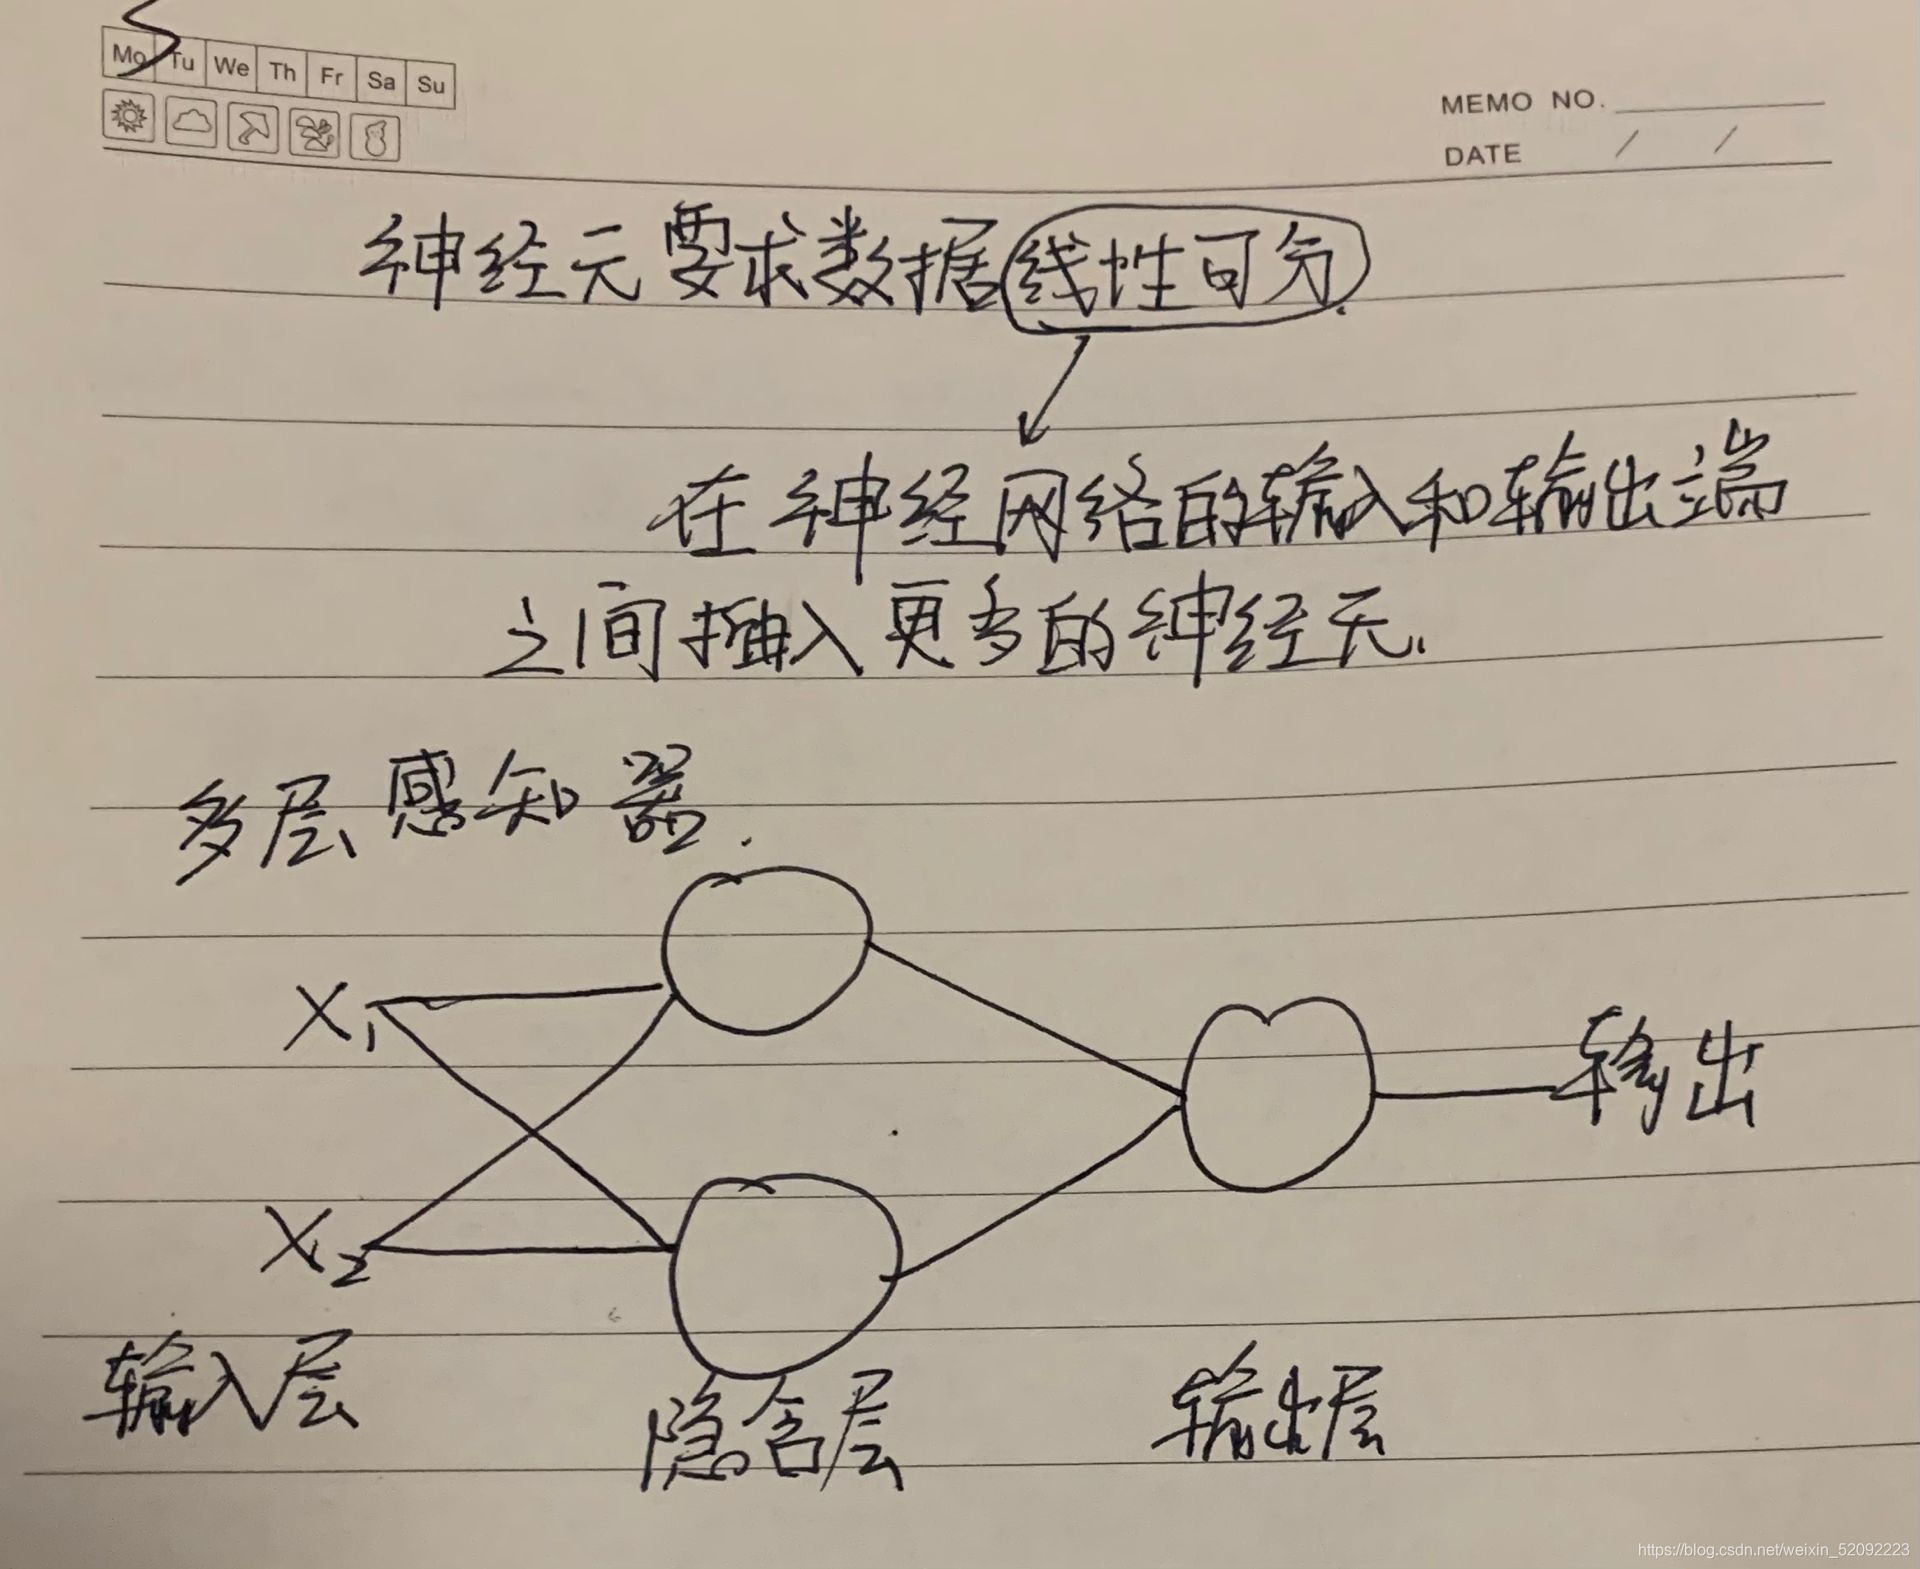 Mo Tu We Th Fr Sa Su
MEMO NO.
DATE / /
神经元要求数据线性可分.
在神经网络的输入和输出端
之间插入更多的神经元.
多层感知器.
X1
输出
X2
输入层
隐含层
输出层
https://blog.csdn.net/weixin_52092223